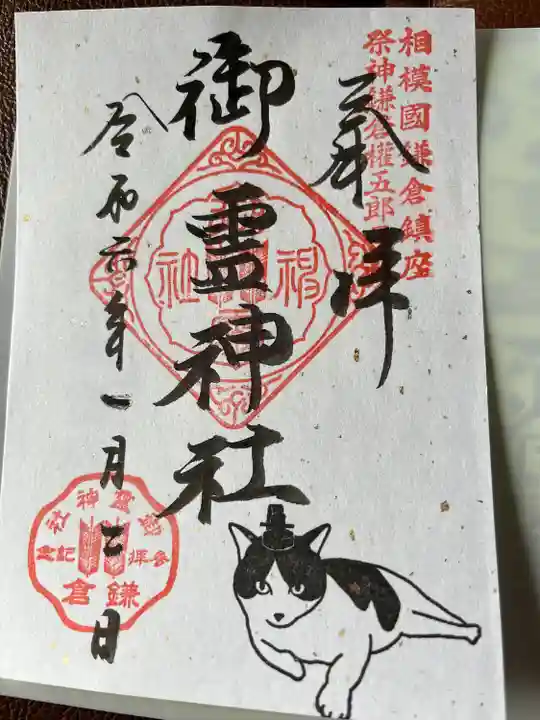 相模國鎌倉鎮座
祭神鎌倉權五郎
奉拝
御霊神社
令和六年一月二日
御霊神社
参拝記念
鎌倉